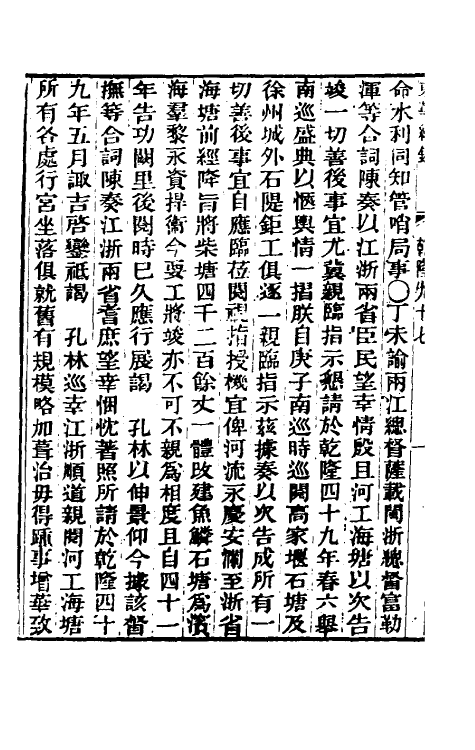 乾隆九十七
命水利同知管哨局事〇丁未諭兩江總督薩載閩浙總督富勒
渾等合詞陳奏以江浙兩省臣民望幸情殷且河工海塘以次告
竣一切善後事宜尤冀親臨指示懇請於乾隆四十九年春六舉
南巡盛典以愜輿情一摺朕自庚子南巡時巡閱高家堰石塘及
徐州城外石隄鉅工俱逐一親臨指示茲據奏以次告成所有一
切善後事宜自應臨莅閱視指授機宜俾河流永慶安瀾至浙省
海塘前經降旨將柴塘四千二百餘丈一體改建魚鱗石塘為濱
海羣黎永資捍衛今要工將竣亦不可不親為相度且自四十一
年告功闕里後閱時已久應行展謁 孔林以伸景仰今據該督
撫等合詞陳奏江浙兩省耆庶望幸悃忱著照所請於乾隆四十
九年五月諏吉啓鑾祗謁 孔林巡幸江浙順道親閱河工海塘
所有各處行宮坐落俱就舊有規模略加葺治毋得踵事增華致